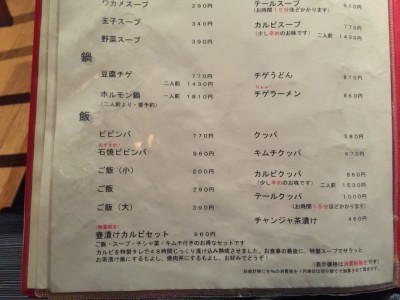 ワカメスープ 290円
玉子スープ 390円
野菜スープ 390円
鍋
豆腐チゲ 770円
二人前 1430円
ホルモン鍋 一人前 1810円
(二人前より・要予約)
飯
ビビンバ 770円
おすすめ!
石焼ビビンバ 960円
ご飯(小) 200円
ご飯 290円
ご飯(大) 390円
壺漬けカルビセット 960円
ご飯・スープ・チシャ菜・キムチ付きのお得なセットです
カルビを特製タレで48時間じっくり漬け込み熟成させました。お食事の最後に、特製スープでサラッと
お茶漬け風にするもよし、焼肉丼にするもよし、お好みでどうぞ!
テールスープ
(お時間15分ほどかかります)
カルビスープ 770円
(少し辛めのお味です) 二人前 1430円
チゲうどん 870円
チゲラーメン 860円
クッパ 580円
キムチクッパ 670円
カルビクッパ 860円
(少し辛めのお味です) 二人前 1530円
テールクッパ 1000円
(お時間15分ほどかかります)
チャンジャ茶漬け 460円
(表示価格は消費税込です)